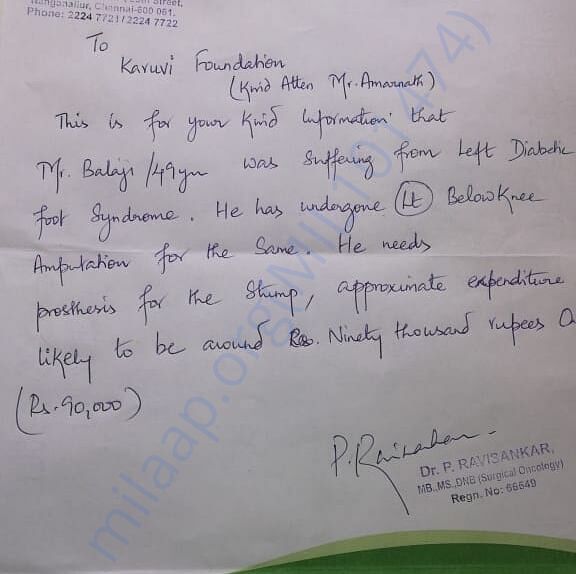 Street,
Nanganallur, Chennai-600 061.
Phone: 2224 7721 / 2224 7722
To
Karuvi Foundation
(Kind Atten Mr. Amarnath)
This is for your Kind Information that
Mr. Balaji /49yrs was suffering from Left Diabetic
foot Syndrome. He has undergone Lt Below Knee
Amputation for the Same. He needs
prosthesis for the Stump, approximate expenditure
likely to be around Rs. Ninety thousand rupees
(Rs. 90,000)
P. Ravisankar
Dr. P. RAVISANKAR,
MB.,MS.,DNB (Surgical Oncology)
Regn. No: 66549
milaap.org(MIL101474)